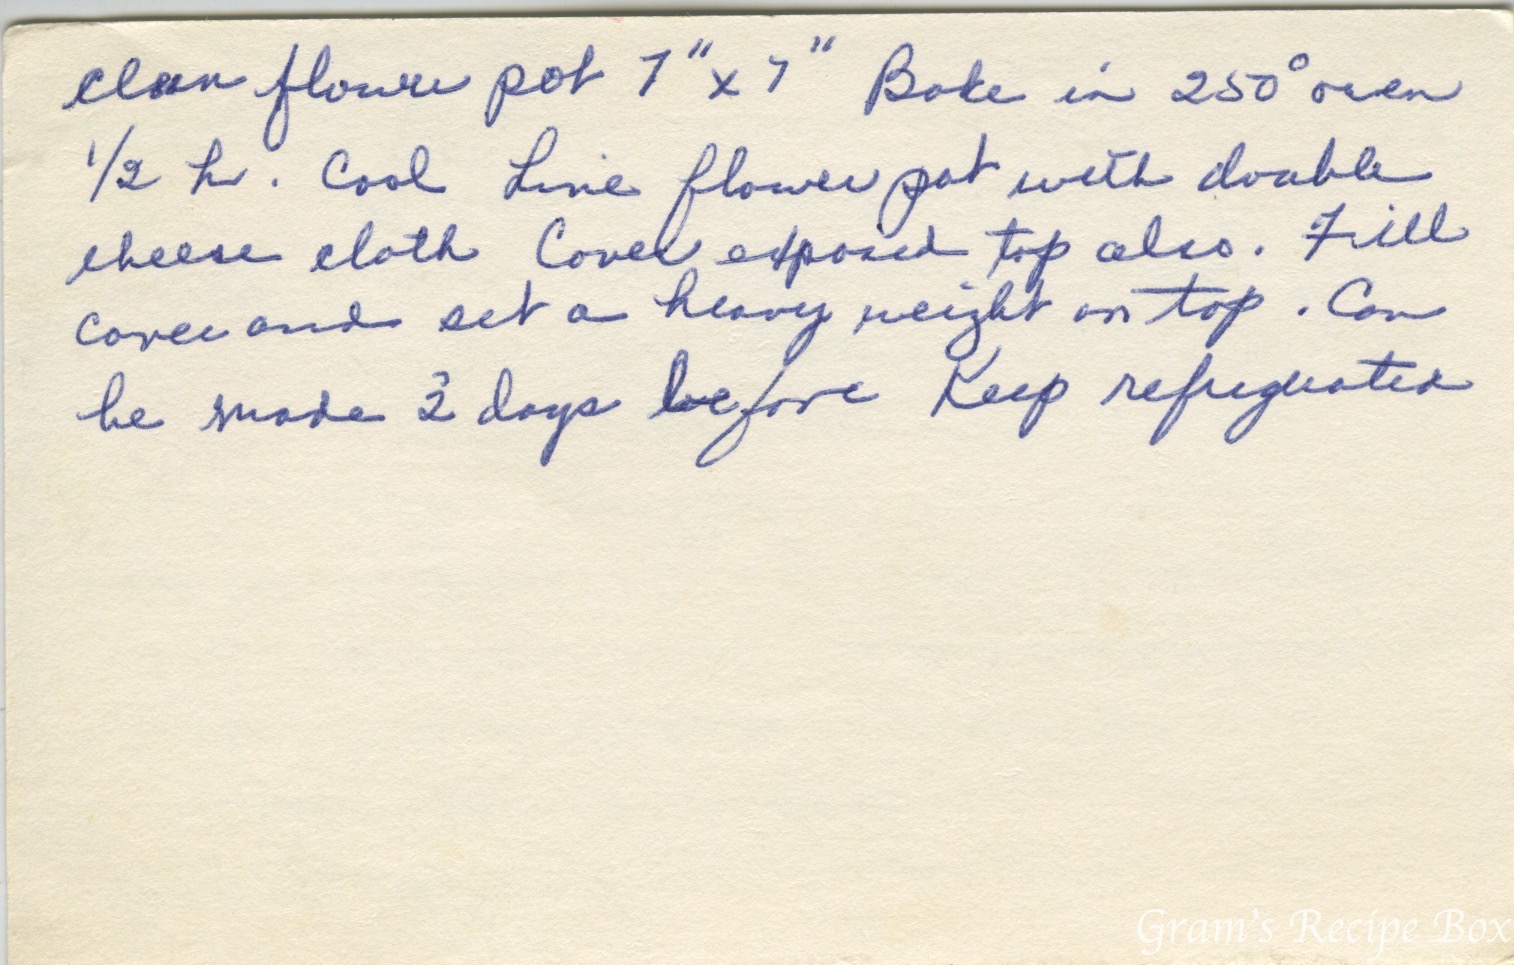 clean flower pot 7" x 7" Bake in 250° oven
1/2 hr. Cool Line flower pot with double
cheese cloth Cover exposed top also. Fill
cover and set a heavy weight on top. Can
be made 3 days before Keep refrigerated
Gram's Recipe Box